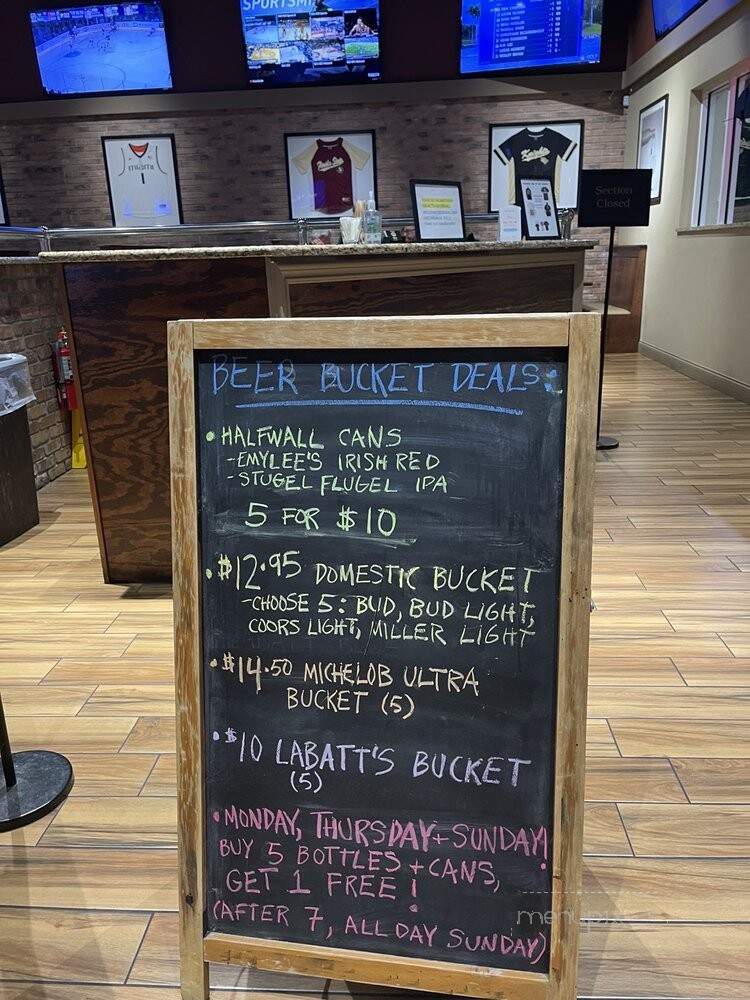 SPORTSMI
miami
1
Knights
Section
Closed
BEER BUCKET DEALS:
• HALFWALL CANS
-EMYLEE'S IRISH RED
-STUGEL FLUGEL IPA
5 FOR $10
• $12.95 DOMESTIC BUCKET
-CHOOSE 5: BUD, BUD LIGHT,
COORS LIGHT, MILLER LIGHT
• $14.50 MICHELOB ULTRA
BUCKET (5)
• $10 LABATT'S BUCKET
(5)
• MONDAY, THURSDAY + SUNDAY!
BUY 5 BOTTLES + CANS,
GET 1 FREE!
(AFTER 7, ALL DAY SUNDAY)